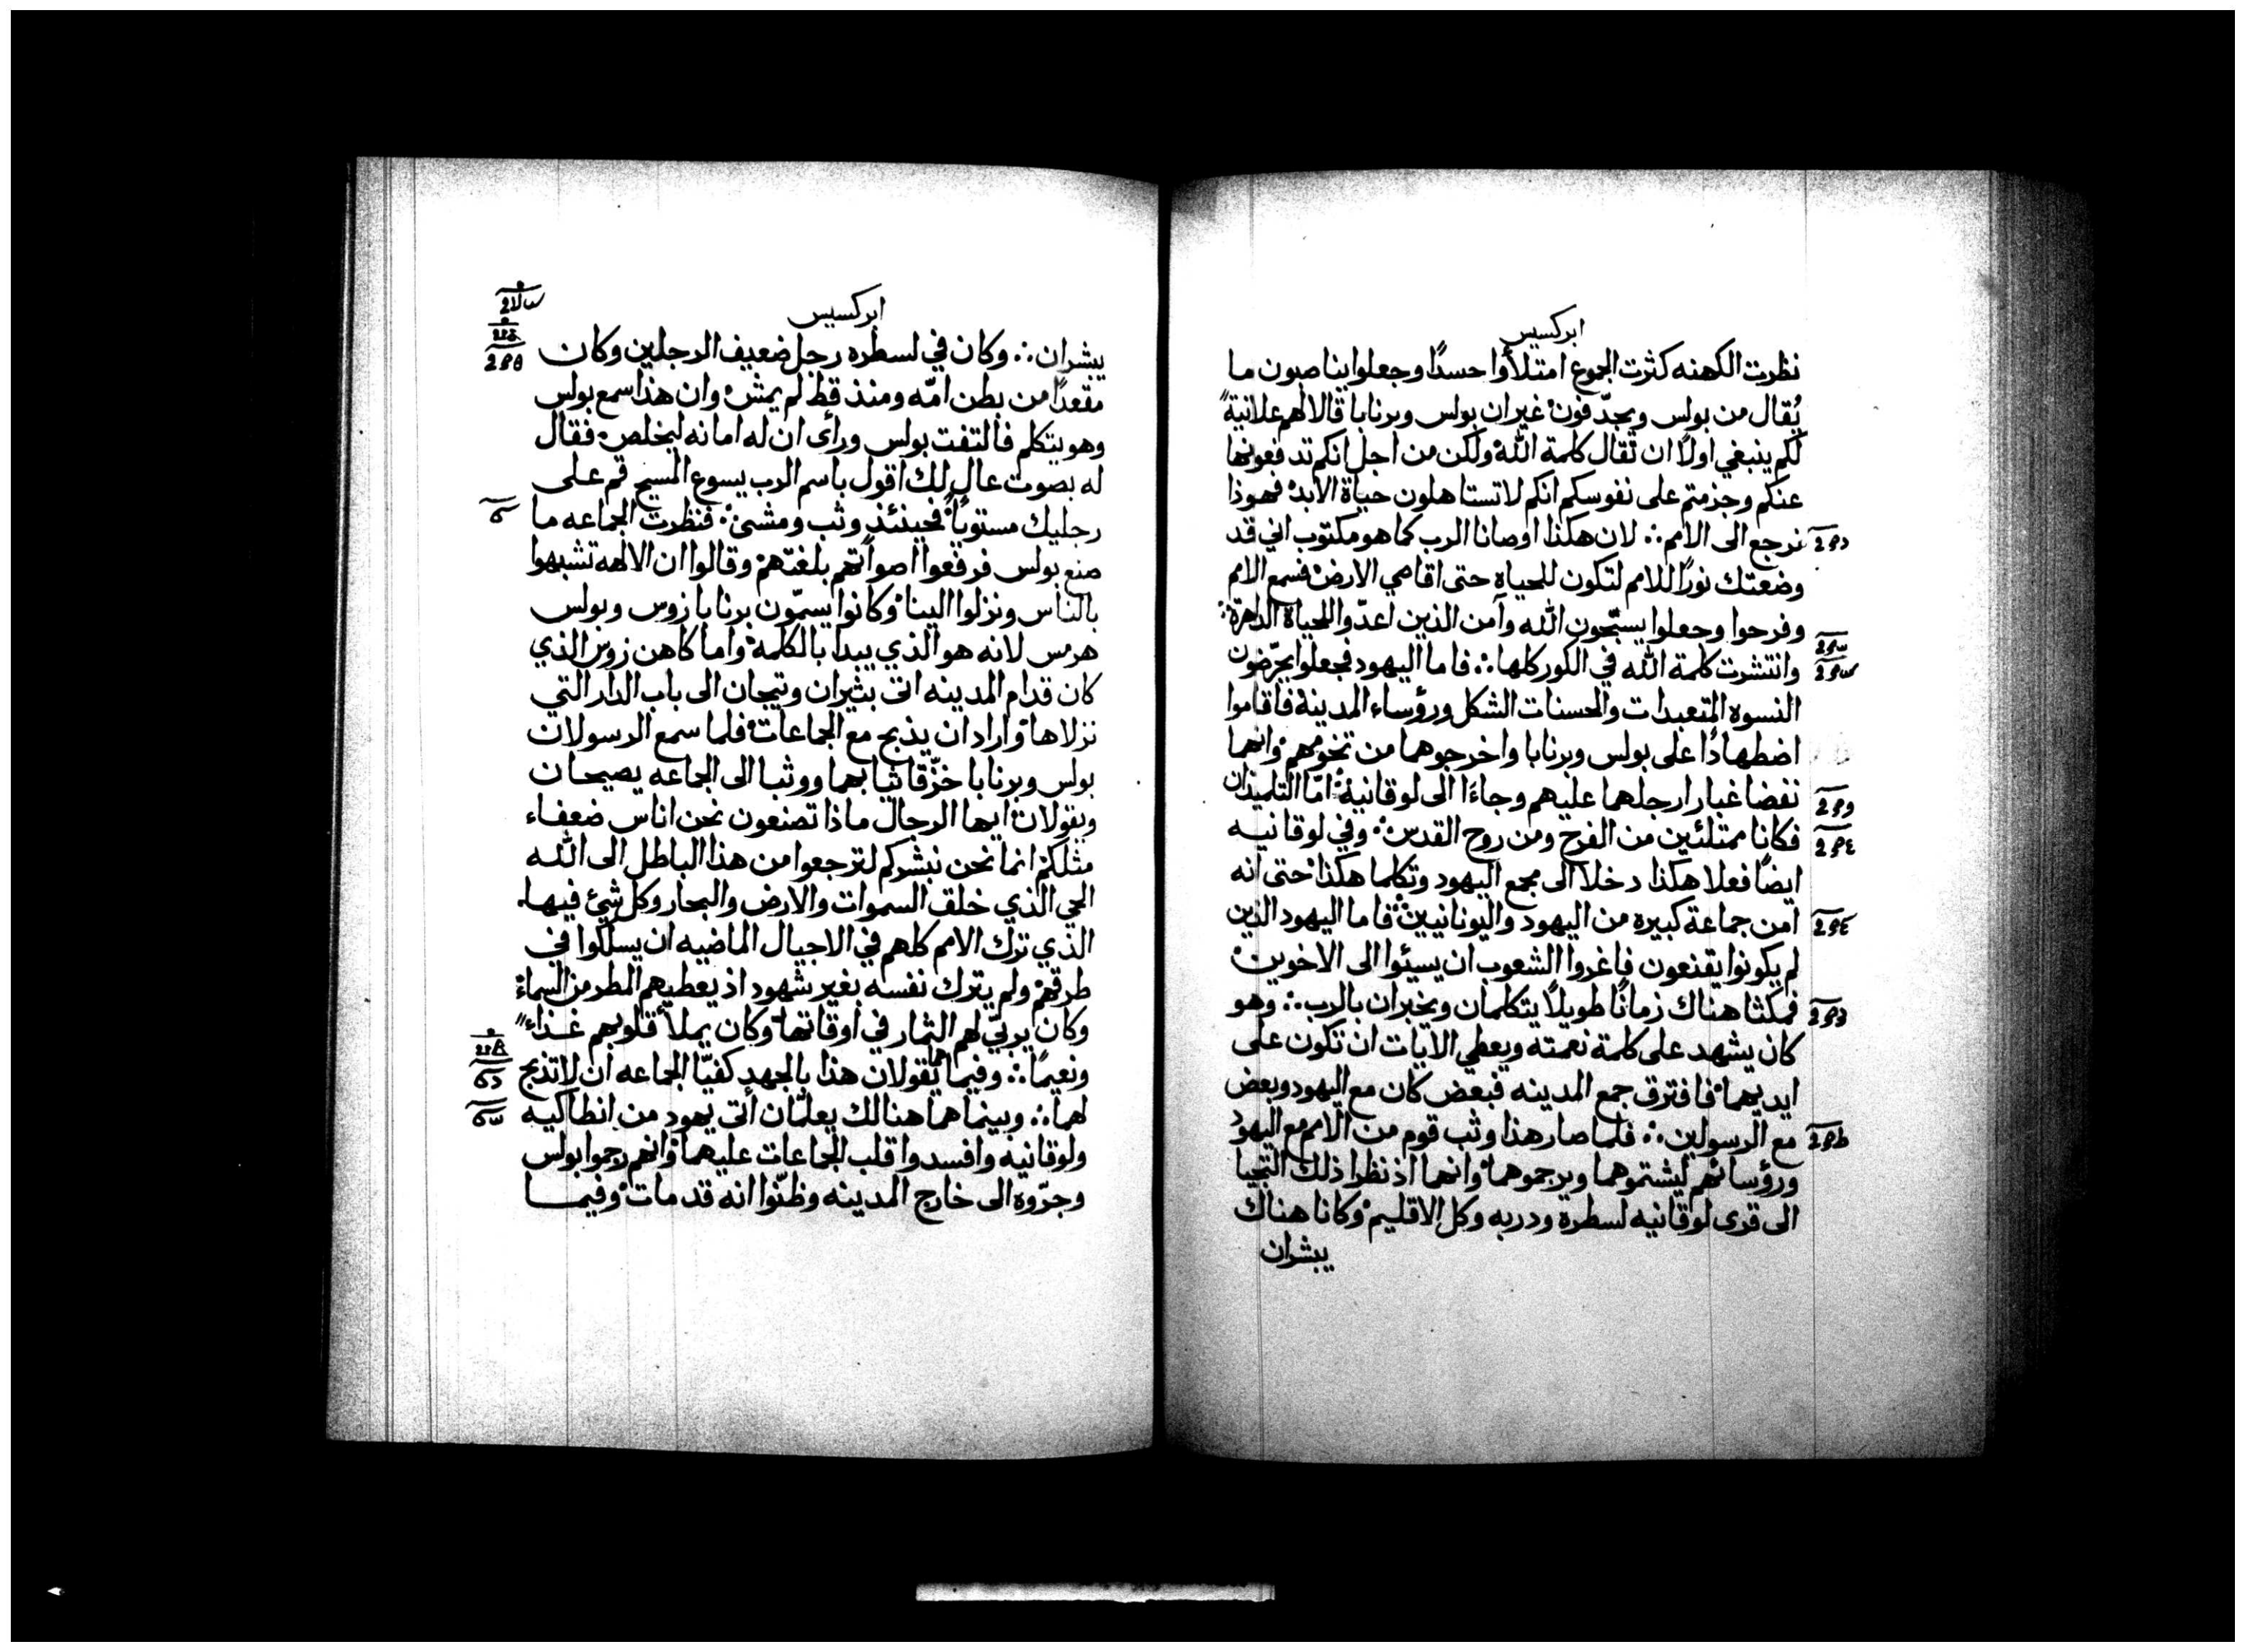 ابركسيس
نظرت الكهنه كثرت الجموع امتلأوا حسدًا وجعلوا يناصبون ما
يُقال من بولس ويجدّفون غير ان بولس وبرنابا قالا لهم علانيةً
لكم ينبغي اولًا ان تُقال كلمة الله ولكن من اجل انكم تدفعونها
عنكم وجزمتم على نفوسكم انكم لا تستاهلون حياة الابد فهوذا
نرجع الى الامم ∴ لان هكذا اوصانا الرب كما هو مكتوب اني قد
وضعتك نورًا للامم لتكون للحياه حتى اقاصي الارض فسمع الامم
وفرحوا وجعلوا يسبّحون الله وآمن الذين اعدّوا للحياة الداهرة
وانتشرت كلمة الله في الكور كلها ∴ فاما اليهود فجعلوا يحرّضون
النسوه المتعبدات والحسنات الشكل ورؤساء المدينة فاقاموا
اضطهادًا على بولس وبرنابا واخرجوهما من تخومهم وانهما
نفضا غبار ارجلهما عليهم وجاءَا الى لوقانية امّا التلميذان
فكانا ممتلئين من الفرح ومن روح القدس وفي لوقانيه
ايضًا فعلا هكذا دخلا الى مجمع اليهود وتكلما هكذا حتى انه
امن جماعة كبيره من اليهود واليونانيين فاما اليهود الذين
لم يكونوا يقنعون فاغروا الشعوب ان يسيئوا الى الاخوين
فمكثا هناك زمانًا طويلًا يتكلمان ويخبران بالرب ∴ وهو
كان يشهد على كلمة نعمته ويعطي الايات ان تكون على
ايديهما فافترق جمع المدينه فبعض كان مع اليهود وبعض
مع الرسولين ∴ فلما صار هذا وثب قوم من الامم مع اليهود
ورؤسائهم ليشتموهما ويرجموهما وانهما اذ نظرا ذلك التجيا
الى قرى لوقانيه لسطرة ودربه وكل الاقليم وكانا هناك
يبشران
ابركسيس
يبشران ∴ وكان في لسطره رجل ضعيف الرجلين وكان
مقعدًا من بطن امّه ومنذ قط لم يمش وان هذا سمع بولس
وهو يتكلم فالتفت بولس ورأى ان له امانه ليخلص فقال
له بصوت عال لك اقول باسم الرب يسوع المسيح قم على
رجليك مستويًا فحينئذ وثب ومشى فنظرت الجماعه ما
صنع بولس فرفعوا اصواتهم بلغتهم وقالوا ان الالهه تشبهوا
بالناس ونزلوا الينا وكانوا يسمّون برنابا زوس وبولس
هرمس لانه هو الذي يبدا بالكلمه واما كاهن زوس الذي
كان قدام المدينه اتى بثيران وتيجان الى باب الدار التي
نزلاها واراد ان يذبح مع الجماعات فلما سمع الرسولان
بولس وبرنابا خزّقا ثيابهما ووثبا الى الجماعه يصيحان
ويقولان ايها الرجال ماذا تصنعون نحن اناس ضعفاء
مثلكم انما نحن نبشركم لترجعوا من هذا الباطل الى الله
الحي الذي خلق السموات والارض والبحار وكل شيء فيها
الذي ترك الامم كلهم في الاجيال الماضيه ان يسلكوا في
طرقهم ولم يترك نفسه بغير شهود اذ يعطيهم المطر من السماء
وكان يربّي لهم الثمار في اوقاتها وكان يملأ قلوبهم غذاءً
ونعيمًا ∴ وفيما يقولان هذا بالجهد كفيّا الجماعه ان لا تذبح
لهما ∴ وبينما هما هنالك يعلّمان أتى يهود من انطاكيه
ولوقانيه وافسدوا قلب الجماعات عليهما وانهم رجموا بولس
وجرّوه الى خارج المدينه وظنّوا انه قد مات وفيما